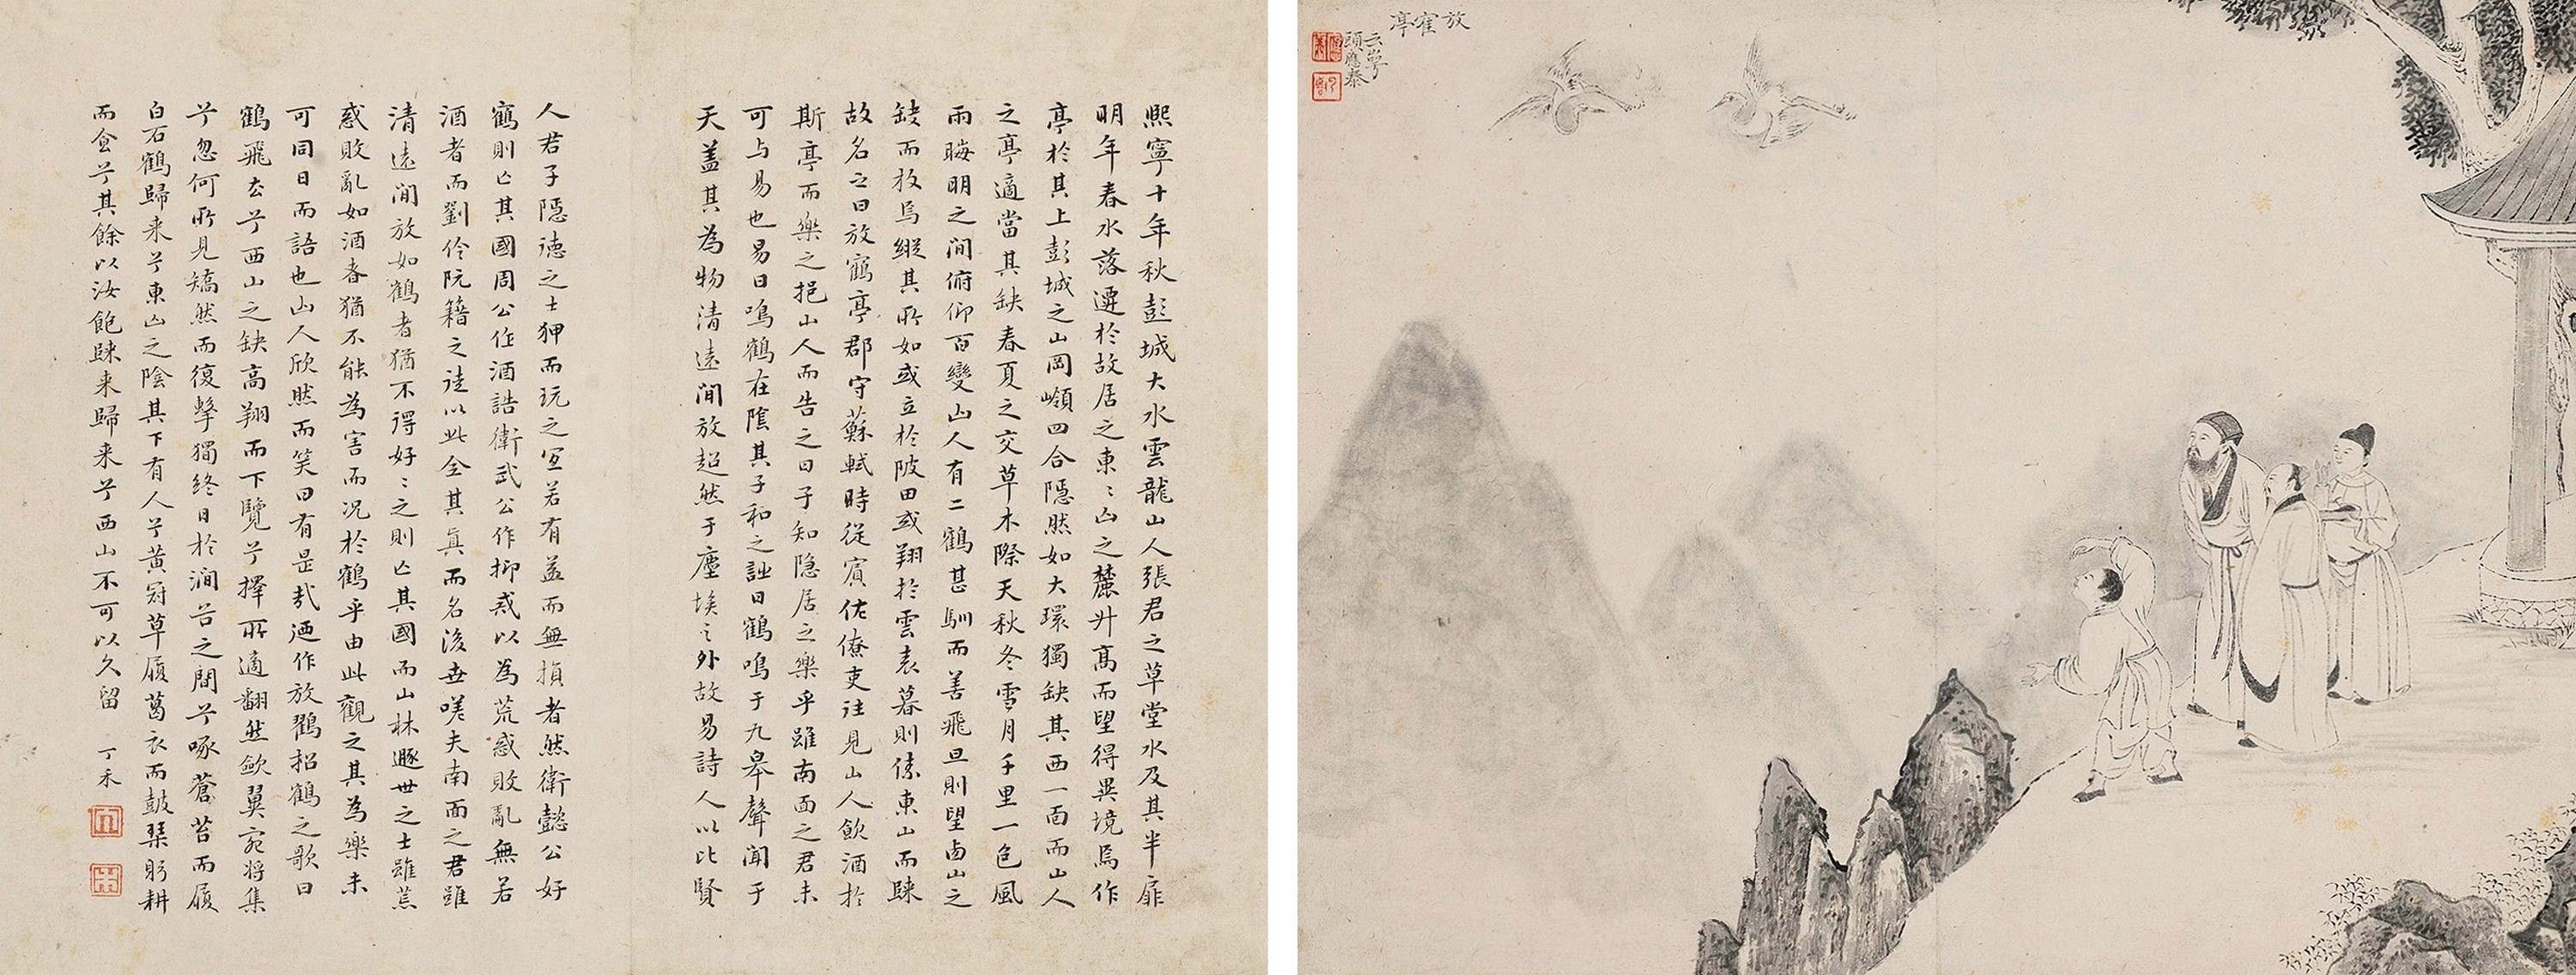 放寉亭
云夢
顧應泰
熙寧十年秋彭城大水雲龍山人張君之草堂水及其半扉
明年春水落遷於故居之東〻山之麓升高而望得異境焉作
亭於其上彭城之山岡嶺四合隱然如大環獨缺其西一面而山人
之亭適當其缺春夏之交草木際天秋冬雪月千里一色風
雨晦明之間俯仰百變山人有二鶴甚馴而善飛旦則望西山之
缺而放焉縱其所如或立於陂田或翔於雲表暮則傃東山而歸
故名之曰放鶴亭郡守蘇軾時從賓佐僚吏往見山人飲酒於
斯亭而樂之挹山人而告之曰子知隱居之樂乎雖南面之君未
可与易也易曰鳴鶴在陰其子和之詩曰鶴鳴于九皋聲聞于
天蓋其為物清遠閒放超然于塵埃之外故易詩人以比賢
人君子隱德之士狎而玩之宜若有益而無損者然衛懿公好
鶴則亡其國周公作酒誥衛武公作抑戒以為荒惑敗亂無若
酒者而劉伶阮籍之徒以此全其真而名後世嗟夫南面之君雖
清遠閒放如鶴者猶不得好〻之則亡其國而山林遯世之士雖荒
惑敗亂如酒者猶不能為害而況於鶴乎由此觀之其為樂未
可同日而語也山人欣然而笑曰有是哉迺作放鶴招鶴之歌曰
鶴飛去兮西山之缺高翔而下覽兮擇所適翻然斂翼宛將集
兮忽何所見矯然而復擊獨終日於澗谷之間兮啄蒼苔而履
白石鶴歸来兮東山之陰其下有人兮黃冠草屨葛衣而鼓琴躬耕
而食兮其餘以汝飽歸来歸来兮西山不可以久留 丁禾